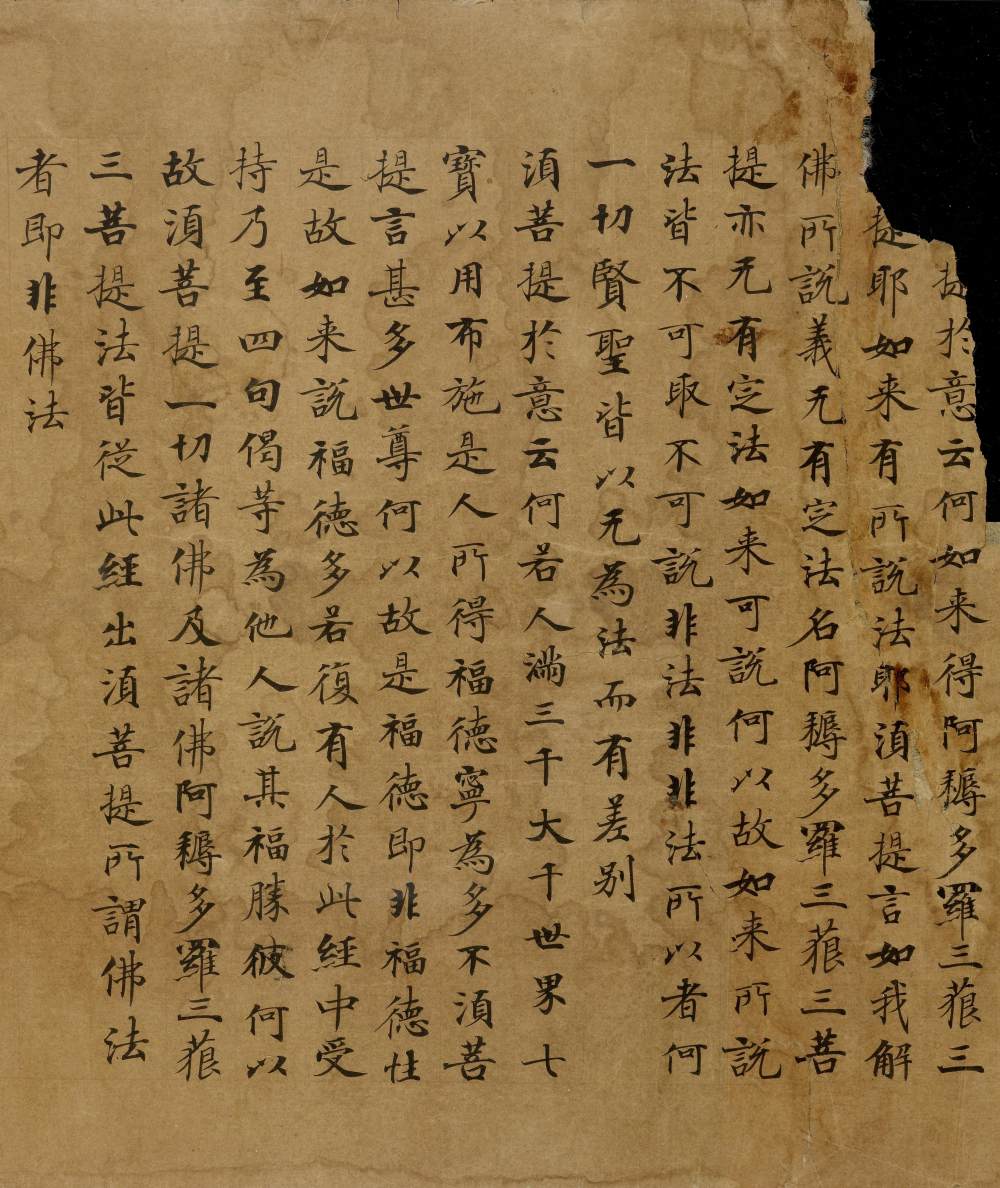 提於意云何如来得阿耨多羅三藐三
提耶如来有所說法耶須菩提言如我解
佛所說義无有定法名阿耨多羅三藐三菩
提亦无有定法如来可說何以故如来所說
法皆不可取不可說非法非非法所以者何
一切賢聖皆以无為法而有差别
須菩提於意云何若人滿三千大千世界七
寶以用布施是人所得福德寧為多不須菩
提言甚多世尊何以故是福德即非福德性
是故如来說福德多若復有人於此經中受
持乃至四句偈等為他人說其福勝彼何以
故須菩提一切諸佛及諸佛阿耨多羅三藐
三菩提法皆從此經出須菩提所謂佛法
者即非佛法